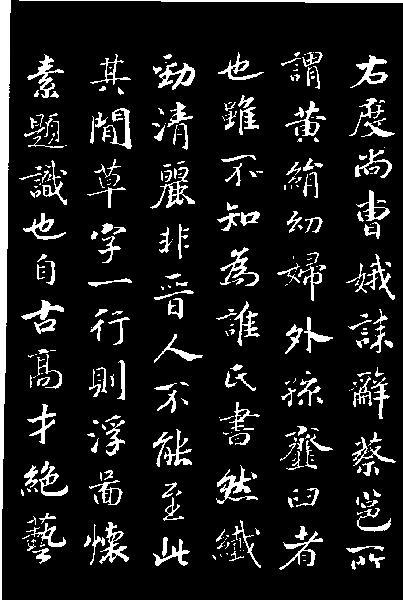 右度尚曹娥誄辭蔡邕所
謂黄絹幼婦外孫虀臼者
也雖不知為誰氏書然纎
勁清麗非晉人不能至此
其間草字一行則浮啚懷
素題識也自古高才絶藝